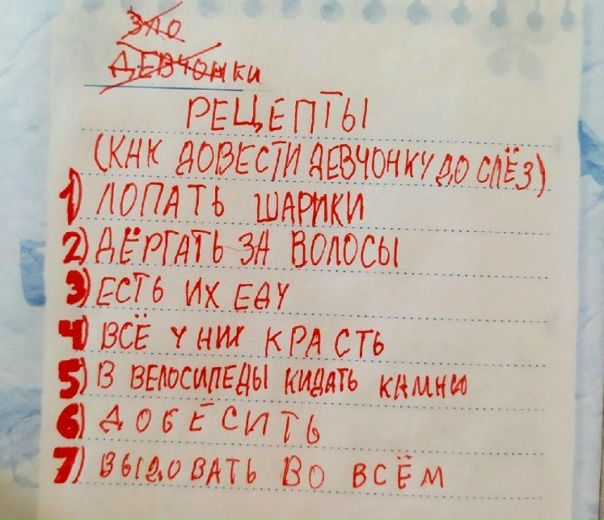 ЗЛО
ДЕВЧОНКИ
РЕЦЕПТЫ
(КАК ДОВЕСТИ ДЕВЧОНКУ ДО СЛЁЗ)
1) ЛОПАТЬ ШАРИКИ
2) ДЁРГАТЬ ЗА ВОЛОСЫ
3) ЕСТЬ ИХ ЕДУ
4) ВСЁ У НИХ КРАСТЬ
5) В ВЕЛОСИПЕДЫ КИДАТЬ КАМНЮ
6) ДОБЁСИТЬ
7) ВЫДОВАТЬ ВО ВСЁМ